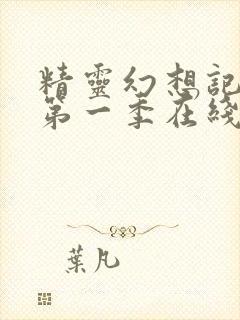 精靈幻想記
第一季在綫
葉凡